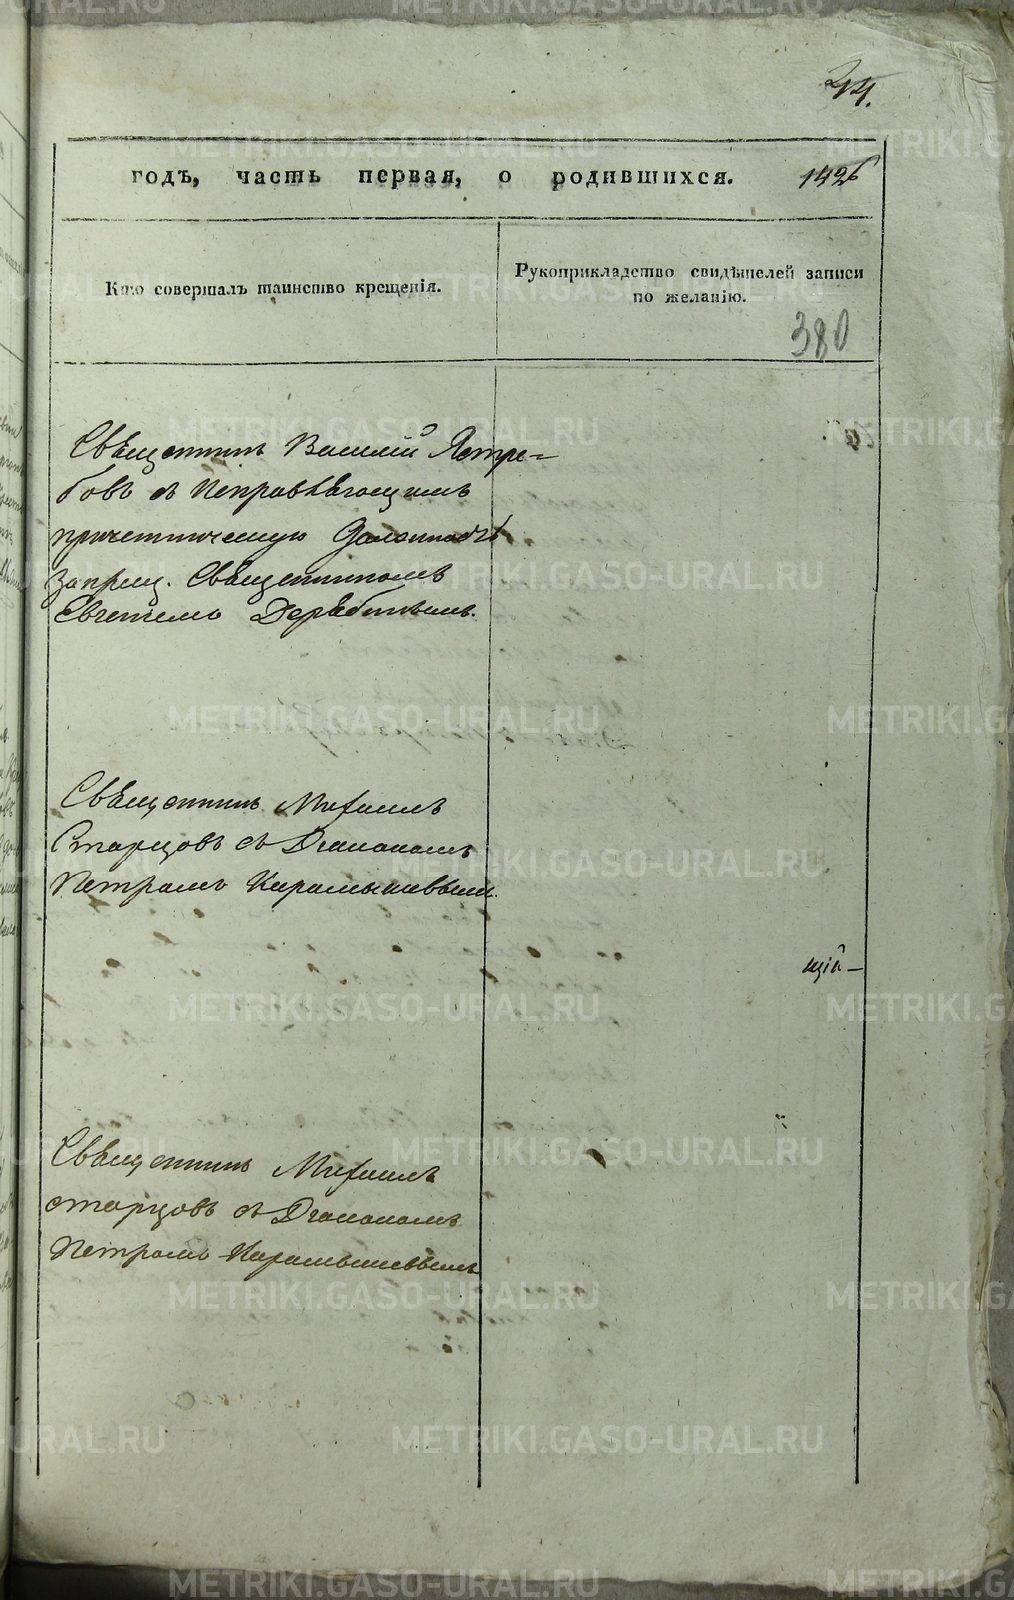 24.
годъ, часть первая, о родившихся. 1426
Кто совершалъ таинство крещенія.
Рукоприкладство свидѣтелей записи
по желанію.
380
Свѣщенникъ Василій Ястре-
бовъ съ Исправляющимъ
причетническую Должность
запрещ. Свѣщенникомъ
Евгеніемъ Дерябинымъ.
Свѣщенникъ Михаилъ
Старцовъ съ Діакономъ
Петромъ Карамышевымъ.
щій
Свѣщенникъ Михаилъ
старцовъ съ Діакономъ
Петромъ Карамышевымъ
METRIKI.GASO-URAL.RU